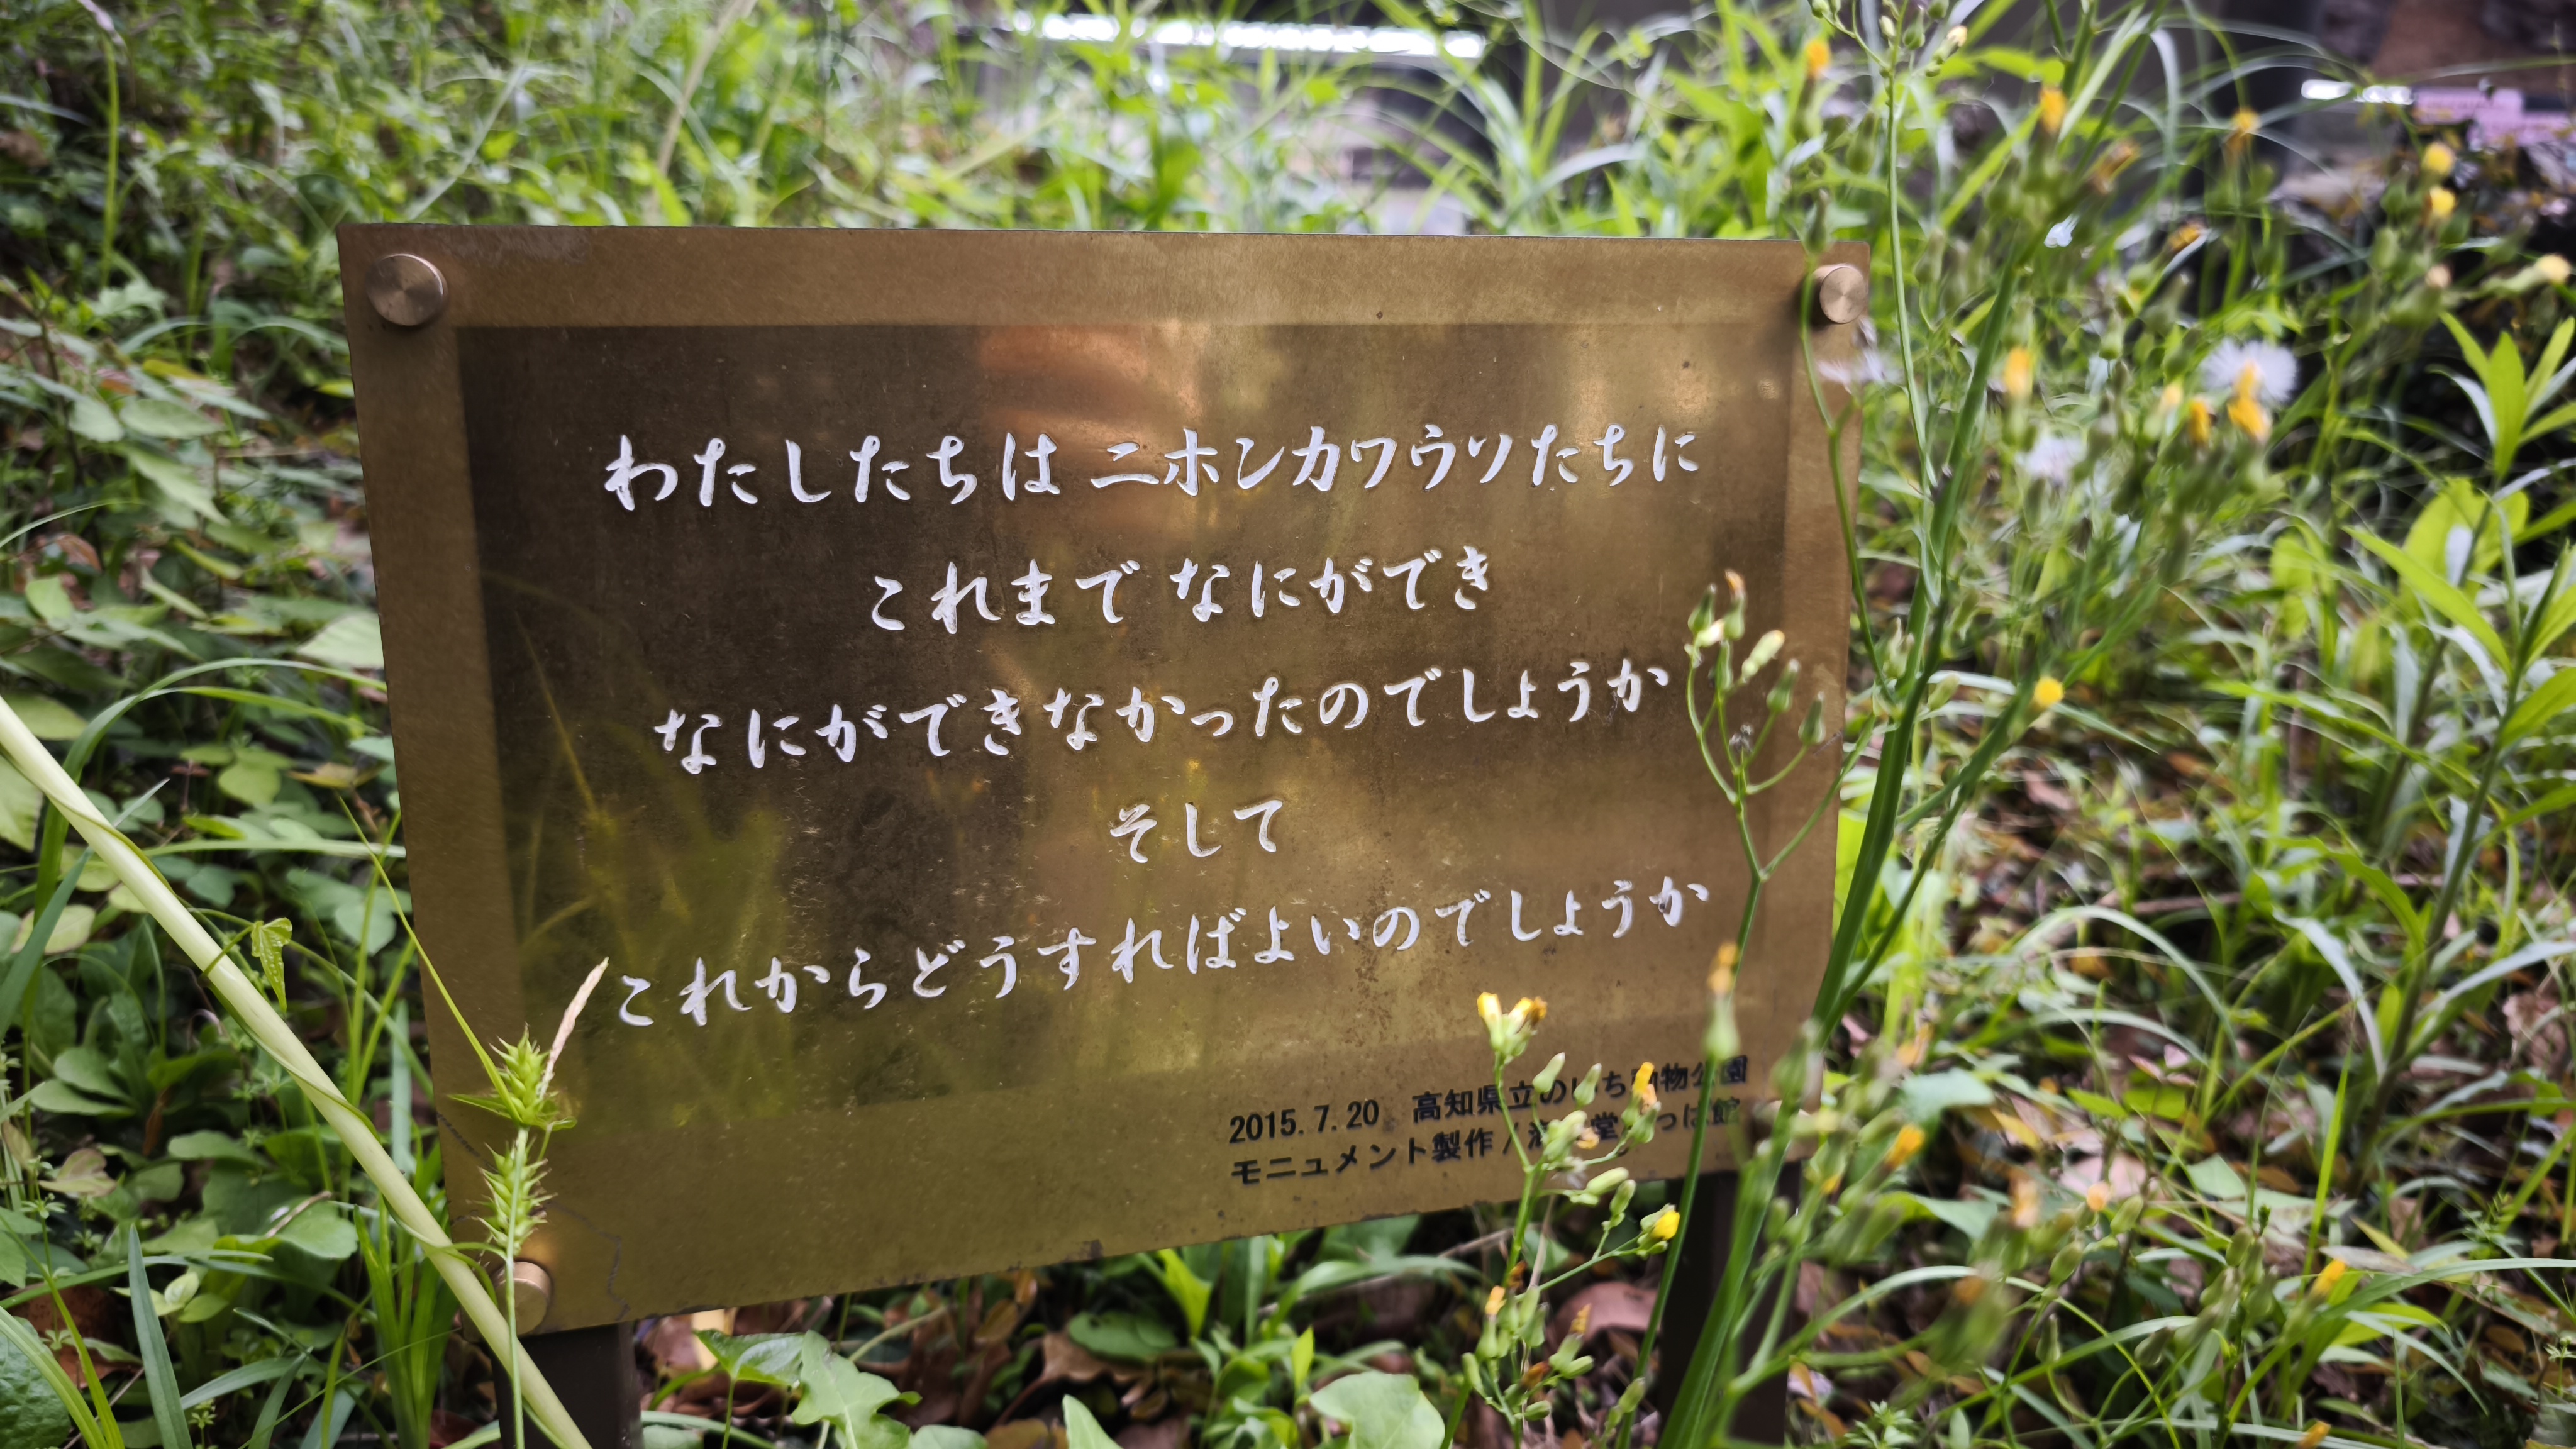 わたしたちは ニホンカワウソたちに
これまで なにができ
なにができなかったのでしょうか
そして
これからどうすればよいのでしょうか
2015.7.20 高知県立のいち動物公園
モニュメント製作/海洋堂かっぱ館